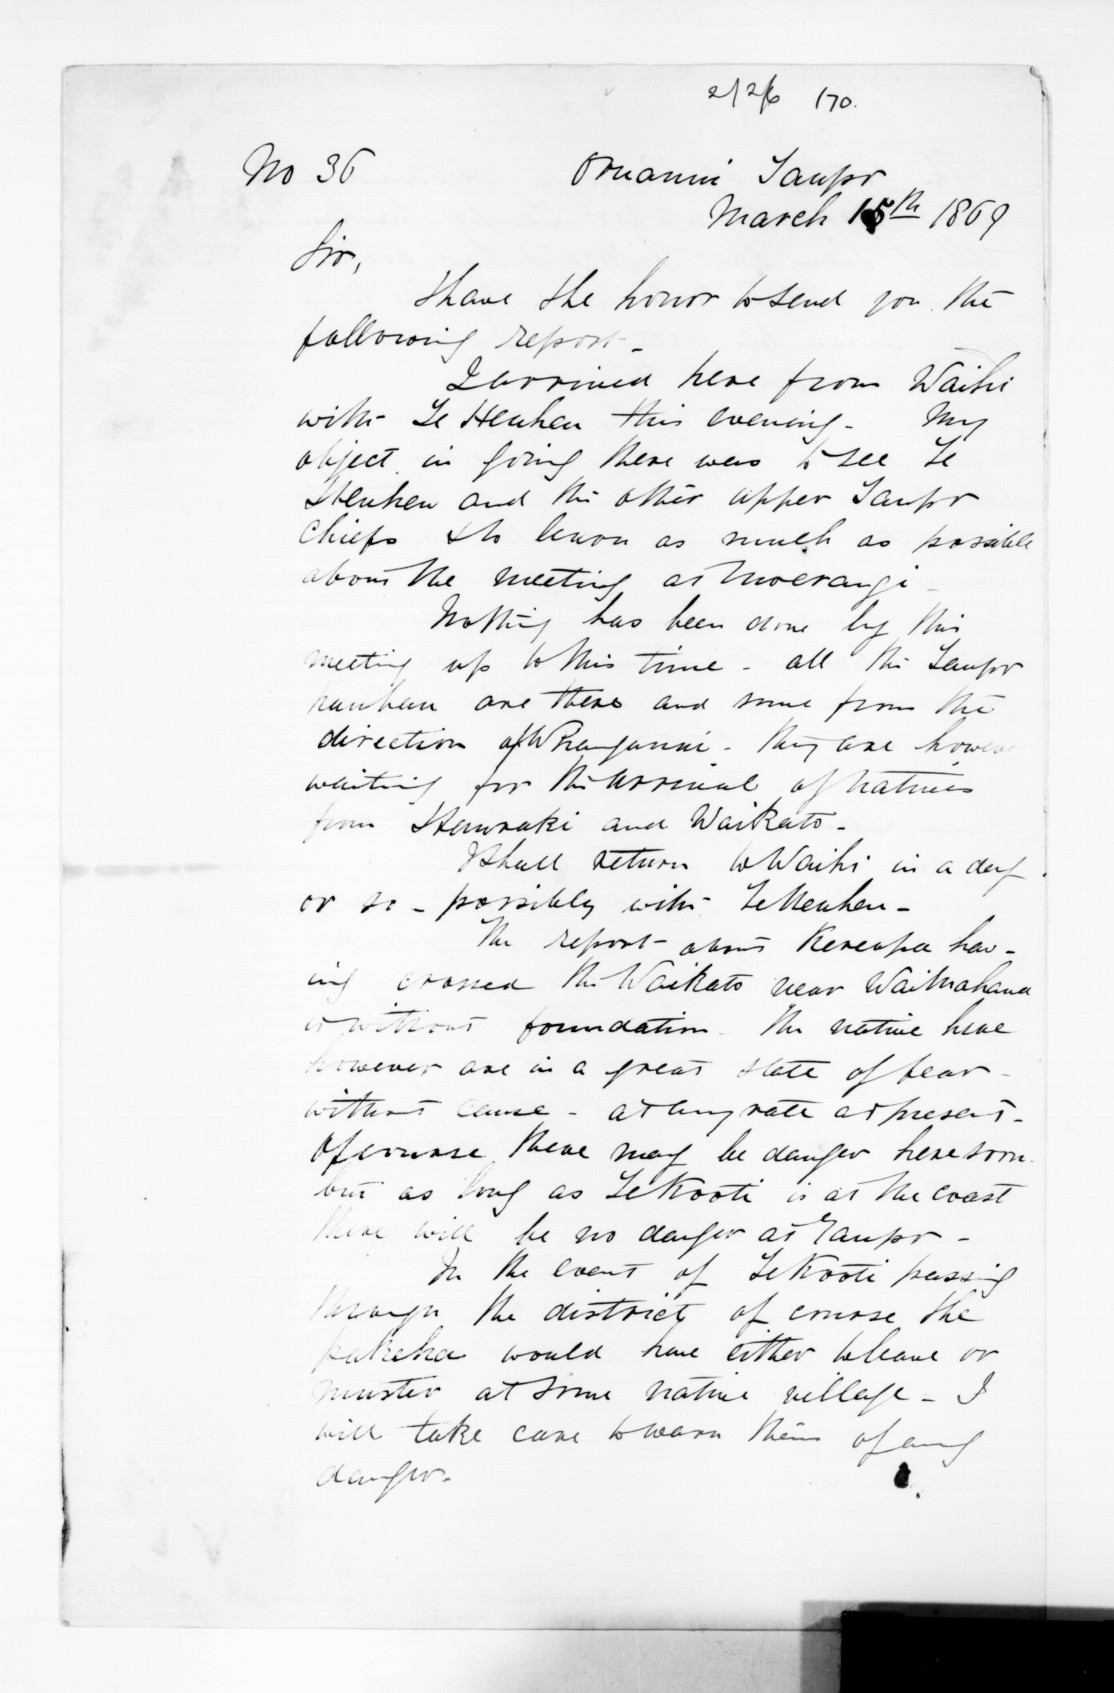 2/2/6 170.
No 36 Oruanui Taupo
March 15th 1869
Sir,
I have the honor to send you the
following report -
I arrived here from Waihi
with Te Heuheu this evening - My
object in going there was to see Te
Heuheu and the other upper Taupo
Chiefs & to learn as much as possible
about the meeting at Moerangi -
Nothing has been done by this
meeting up to this time - all the Taupo
hauhau are there and some from the
direction of Whanganui - they are however
waiting for the arrival of natives
from Hauraki and Waikato -
I shall return to Waihi in a day
or so - possibly with Te Heuheu -
The report about Kereopa hav-
ing crossed the Waikato near Waimahana
is without foundation - The native here
however are in a great state of fear -
without cause - at any rate at present -
Of course there may be danger here soon
but as long as Te Kooti is at the coast
there will be no danger at Taupo -
In the event of Te Kooti passing
through the district of course the
pakeha would have either to leave or
muster at some native village - I
will take care to warn them of any
danger -